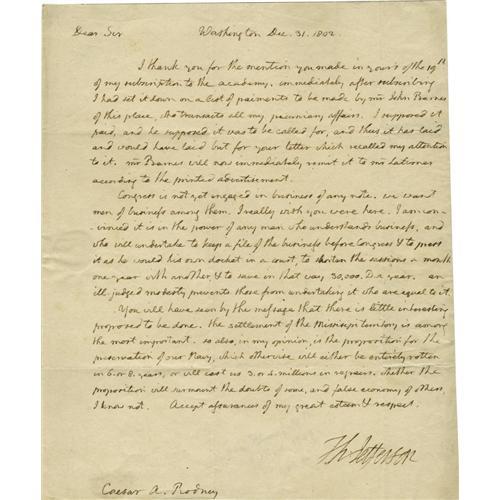 Dear Sir Washington Dec. 31. 1802.
I thank you for the mention you made in yours of the 19th
of my subscription to the academy. immediately after subscribing
I had set it down on a list of paiments to be made by mr John Barnes
of this place, who transacts all my pecuniary affairs. I supposed it
paid, and he supposed it was to be called for, and thus it has laid
and would have laid but for your letter which recalled my attention
to it. mr Barnes will now immediately remit it to mr Latimer
according to the printed advertisement.
Congress is not yet engaged in business of any note. we want
men of business among them. I really wish you were here. I am con-
-vinced it is in the power of any man who understands business, and
who will undertake to keep a file of the business before Congress & to press
it as he would his own docket in a court, to shorten the sessions a month
one year with another, & to save in that way 30,000. D. a year. an
ill-judged modesty prevents those from undertaking it who are equal to it.
You will have seen by the message that there is little interesting
proposed to be done. the settlement of the Missisipi territory is among
the most important. so also, in my opinion, is the proposition for the
preservation of our Navy, which otherwise will either be entirely rotten
in 6. or 8. years, or will cost us 3. or 4. millions in repairs. whether the
proposition will surmount the doubts of some, and false economy of others,
I know not. Accept assurances of my great esteem & respect.
Th: Jefferson
Caesar A. Rodney